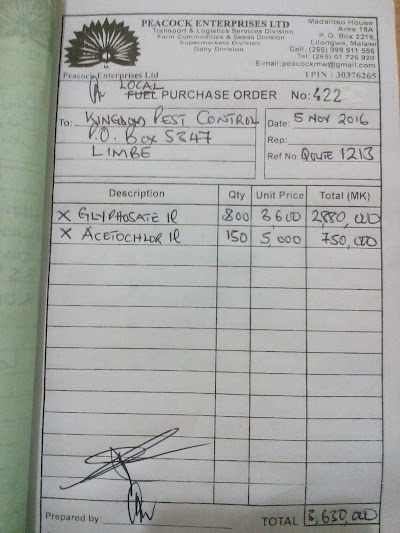 PEACOCK ENTERPRISES LTD
Transport & Logistics Services Division
Farm Commodities & Seeds Division
Supermarkets Division
Dairy Division
Madalitso House
Area 18A
P. O. Box 2218,
Lilongwe, Malawi
Cell: (265) 999 911 555
Tel: (265) 01 726 920
E-mail:peacockmw@gmail.com
Peacock Enterprises Ltd
TPIN : 30376265
LOCAL
FUEL PURCHASE ORDER No: 422
To: KINGDOM PEST CONTROL
P.O. Box 5347
LIMBE
Date: 5 NOV 2016
Rep:
Ref No QUOTE 1213
Description Qty Unit Price Total (MK)
X GLYPHOSATE 1l 800 3600 2880,000
X ACETOCHLOR 1l 150 5,000 750,000
Prepared by: TOTAL 3,630,000